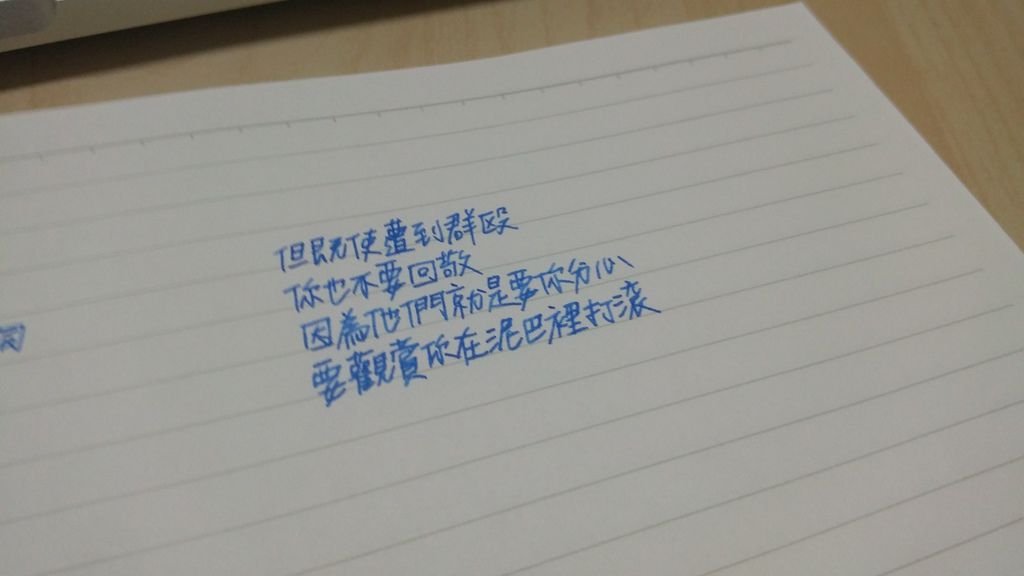 但既使遭到群毆
你也不要回敬
因為他們就是要你分心
要觀賞你在泥巴裡打滾